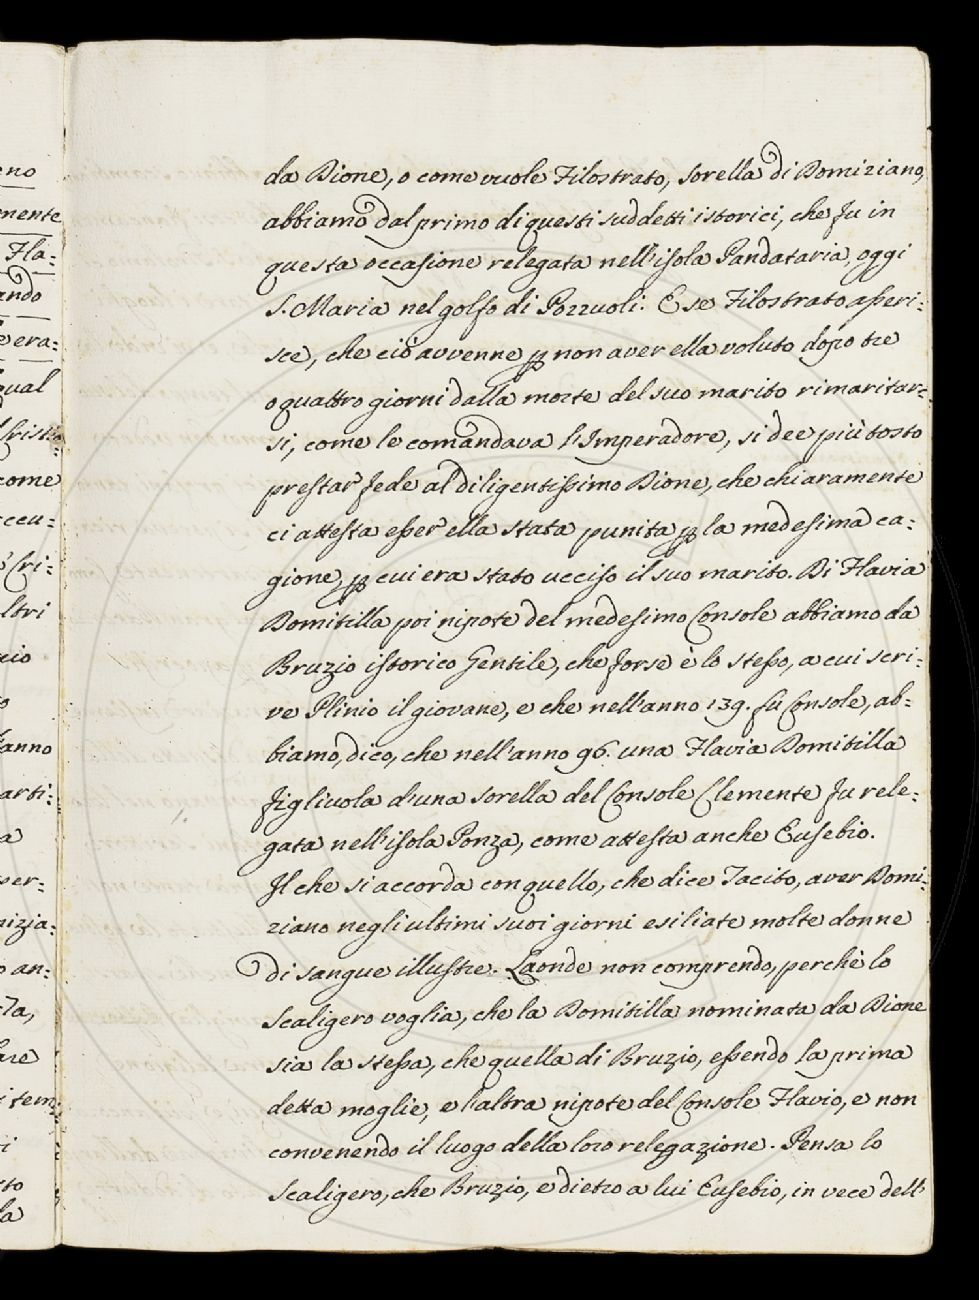 da Dione, o come vuole Filostrato, sorella di Domiziano,
abbiamo dal primo di questi suddetti istorici, che fu in
questa occasione relegata nell'isola Pandataria, oggi
S. Maria nel golfo di Pozzuoli. E se Filostrato asseri=
sce, che ciò avvenne p non aver ella voluto dopo tre
o quattro giorni dalla morte del suo marito rimaritar=
si, come le comandava l'Imperadore, si dee più tosto
prestar fede al diligentissimo Dione, che chiaramente
ci attesta esser ella stata punita p la medesima ca=
gione, p cui era stato ucciso il suo marito. Di Flavia
Domitilla poi nipote del medesimo Console abbiamo da
Bruzio istorico Gentile, che forse è lo stesso, a cui scri=
ve Plinio il giovane, e che nell'anno 139. fu Console, ab=
biamo, dico, che nell'anno 96. una Flavia Domitilla
figliuola d'una sorella del Console Clemente fu rele=
gata nell'isola Ponza, come attesta anche Eusebio.
Il che si accorda con quello, che dice Tacito, aver Domi=
ziano negli ultimi suoi giorni esiliate molte donne
di sangue illustre. Laonde non comprendo, perchè lo
Scaligero voglia, che la Domitilla nominata da Dione
sia la stessa, che quella di Bruzio, essendo la prima
detta moglie, e l'altra nipote del Console Flavio, e non
convenendo il luogo della loro relegazione. Pensa lo
Scaligero, che Bruzio, e dietro a lui Eusebio, in vece dell'